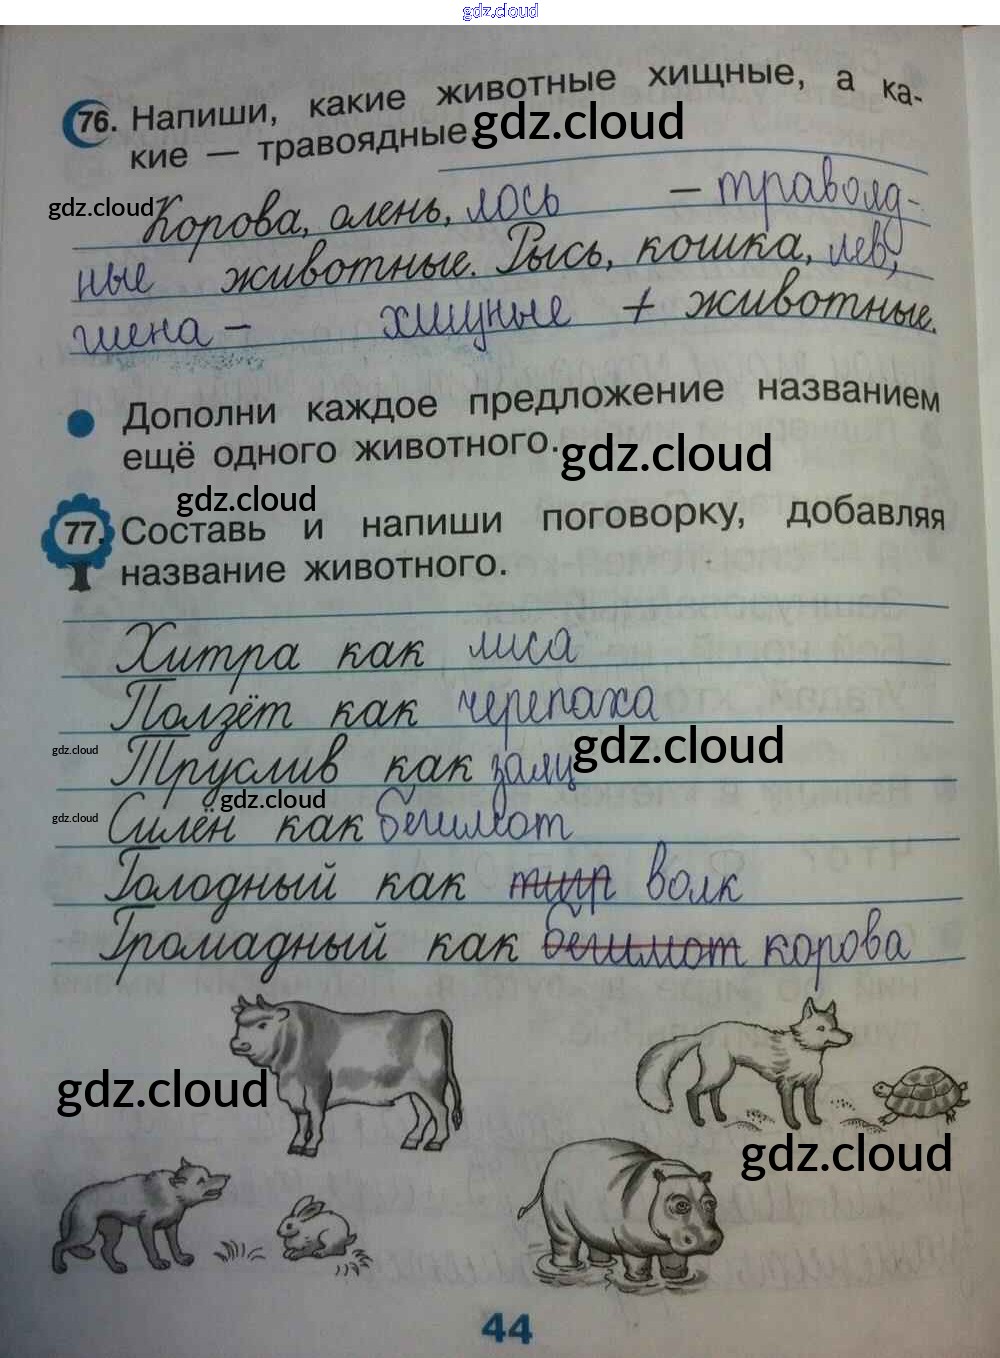 gdz.cloud
76. Напиши, какие животные хищные, а ка-
кие — травоядные.
gdz.cloud
gdz.cloud
Корова, олень, лось – травояд-
ные животные. Рысь, кошка, лев,
гиена – хищные + животные.
Дополни каждое предложение названием
ещё одного животного.
gdz.cloud
gdz.cloud
77. Составь и напиши поговорку, добавляя
название животного.
Хитра как лиса
Ползёт как черепаха
gdz.cloud
gdz.cloud
Труслив как заяц
gdz.cloud
gdz.cloud
Силён как бегимот
Голодный как тигр волк
Громадный как бегимот корова
gdz.cloud
gdz.cloud
44